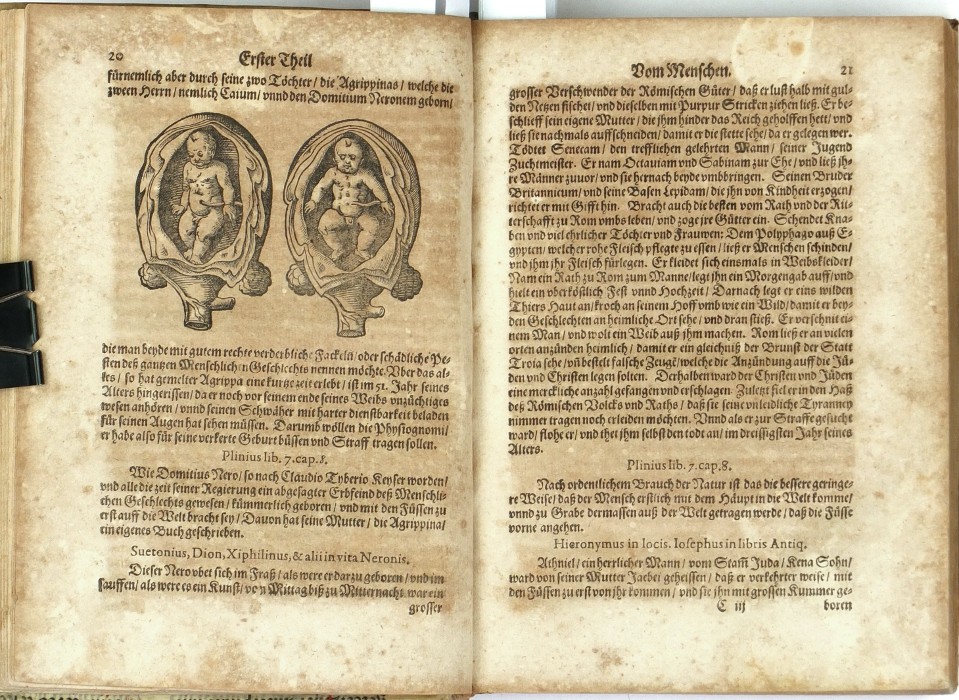 20 Erster Theil
fürnemlich aber durch seine zwo Töchter / die Agrippinas / welche die
zween Herrn / nemlich Caium / vnnd den Domitium Neronem geborn /
die man beyde mit gutem rechte verderbliche Fackeln / oder schädliche Pe-
sten deß gantzen Menschlichen Geschlechts nennen möchte. Vber das al-
les / so hat gemelter Agrippa eine kurtze zeit erlebt / ist im 51. Jahr seines
Alters hingerissen / da er noch vor seinem ende seines Weibs vnzüchtiges
wesen anhören / vnnd seinen Schwäher mit harter dienstbarkeit beladen
für seinen Augen hat sehen müssen. Darumb wöllen die Physiognomi /
er habe also für seine verkerte Geburt büssen vnd Straff tragen sollen.
Plinius lib. 7. cap. 8.
Wie Domitius Nero / so nach Claudio Tyberio Keyser worden /
vnd alle die zeit seiner Regierung ein abgesagter Erbfeind deß Menschli-
chen Geschlechts gewesen / kümmerlich geboren / vnd mit den Füssen zu
erst auff die Welt bracht sey / Dauon hat seine Mutter / die Agrippina /
ein eigenes Buch geschrieben.
Suetonius, Dion, Xiphilinus, & alii in vita Neronis.
Dieser Nero vbet sich im Fraß / als were er darzu geboren / vnd im
sauffen / als were es ein Kunst / von Mittag biß zu Mitternacht war ein
grosser
Vom Menschen. 21
grosser Verschwender der Römischen Güter / daß er lust halb mit gul-
den Netzen fischet / vnd dieselben mit Purpur Stricken ziehen ließ. Er be-
schlieff sein eigene Mutter / die jhm hinder das Reich geholffen hett / vnd
ließ sie nachmals auffschneiden / damit er die stette sehe / da er gelegen wer.
Tödtet Senecam / den trefflichen gelehrten Mann / seiner Jugend
Zuchtmeister. Er nam Octauiam vnd Sabinam zur Ehe / vnd ließ jh-
re Männer zuuor / vnd sie hernach beyde vmbbringen. Seinen Bruder
Britannicum / vnd seine Basen Lepidam / die jhn von Kindheit erzogen /
richtet er mit Gifft hin. Bracht auch die besten vom Rath vnd der Rit-
terschafft zu Rom vmbs leben / vnd zoge jre Gütter ein. Schendet Kna-
ben vnd viel ehrlicher Töchter vnd Frauwen: Dem Polyphago auß E-
gypten / welcher rohe Fleisch pflegte zu essen / ließ er Menschen schinden /
vnd jhm jhr Fleisch fürlegen. Er kleidet sich einsmals in Weibskleider /
Nam ein Rath zu Rom zum Manne / legt jhn ein Morgengab auff / vnd
hielt ein vberköstlich Fest vnnd Hochzeit / Darnach legt er eins wilden
Thiers Haut an / kroch an seinem Hoff vmb wie ein Wild / damit er bey-
den Geschlechten an heimliche Ort sehe / vnd dran stieß. Er verschnit ei-
nem Man / vnd wolt ein Weib auß jhm machen. Rom ließ er an vielen
orten anzünden heimlich / damit er ein gleichniß der Brunst der Statt
Troia sehe / vñ bestelt falsche Zeuge / welche die Anzündung auff die Jü-
den und Christen legen solten. Derhalben ward der Christen vnd Jüden
eine merckliche anzahl gefangen vnd erschlagen. Zuletzt fiel er in den Haß
deß Römischen Volcks vnd Raths / daß sie seine vnleidliche Tyranney
nimmer tragen noch erleiden möchten. Vnnd als er zur Straffe gesucht
ward / flohe er / vnd thet jhm selbst den todt an / im dreissigsten Jahr seines
Alters.
Plinius lib. 7. cap. 8.
Nach ordentlichem Brauch der Natur ist das die bessere geringe-
re Weise / daß der Mensch erstlich mit dem Häupt in die Welt komme /
vnnd zu Grabe dermassen auß der Welt getragen werde / daß die Füsse
vorne angehen.
Hieronymus in locis. Iosephus in libris Antiq.
Athniel / ein herrlicher Mann / vom Stam̃ Juda / Kena Sohn /
ward von seiner Mutter Jaebei geheissen / daß er verkehrter weise / mit
den Füssen zu erst von jhr kommen / vnd sie jhn mit grossen Kummer ge-
C iij boren